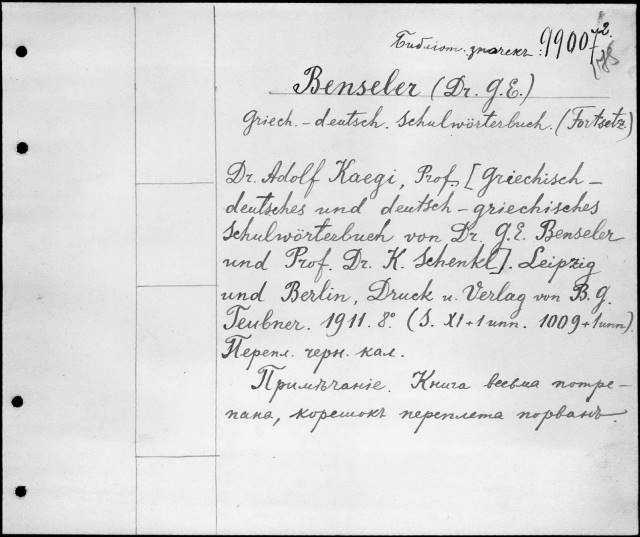 Библіот. значекъ: 99007 2.
Benseler (Dr. G.E.)
Griech.-deutsch. Schulwörterbuch. (Fortsetz.)
Dr. Adolf Kaegi, Prof. [Griechisch-
deutsches und deutsch-griechisches
Schulwörterbuch von Dr. G.E. Benseler
und Prof. Dr. K. Schenkl]. Leipzig
und Berlin, Druck u. Verlag von B.G.
Teubner. 1911. 8º. (S. XI+1 unn. 1009+1 unn).
Перепл. черн. кал.
Примѣчаніе. Книга весьма потре-
пана, корешокъ переплета порванъ.